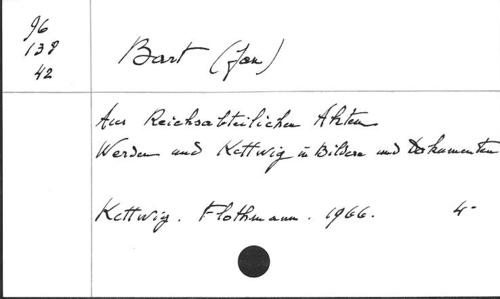 96
138
42
Bart (Jan)
Aus Reichsabteilichen Akten
Werden und Kettwig in Bildern und Dokumenten
Kettwig. Flothmann. 1966. 4-